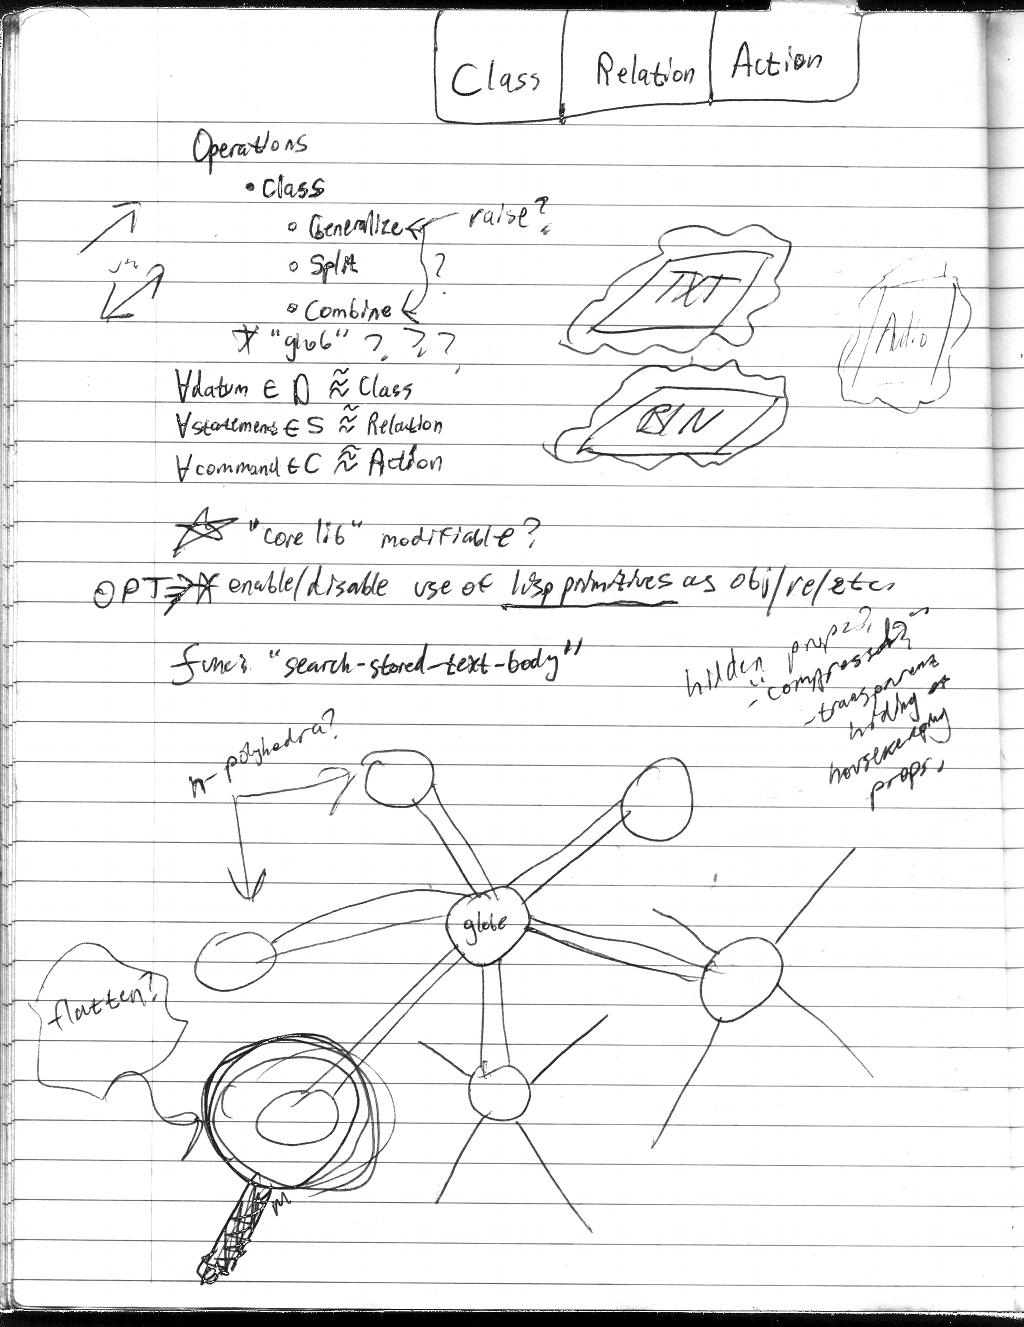 Class Relation Action
Operations
• Class
◦ Generalize raise?
◦ Split ?
◦ Combine
* "glob" ? ? ?
TXT
Audio
BIN
∀datum ∈ D ≈ Class
∀statement ∈ S ≈ Relation
∀command ∈ C ≈ Action
☆ "core lib" modifiable?
OPT⇒* enable/disable use of lisp primitives as obj/re/etc.
func: "search-stored-text-body"
hidden props?
- compressed?
- transparent
hiding of
housekeeping
props.
n-polyhedra?
globe
flatten?